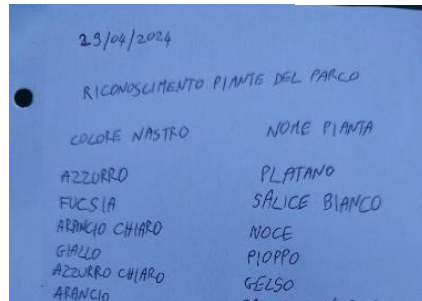 23/04/2024
RICONOSCIMENTO PIANTE DEL PARCO
COLORE NASTRO NOME PIANTA
AZZURRO PLATANO
FUCSIA SALICE BIANCO
ARANCIO CHIARO NOCE
GIALLO PIOPPO
AZZURRO CHIARO GELSO
ARANCIO